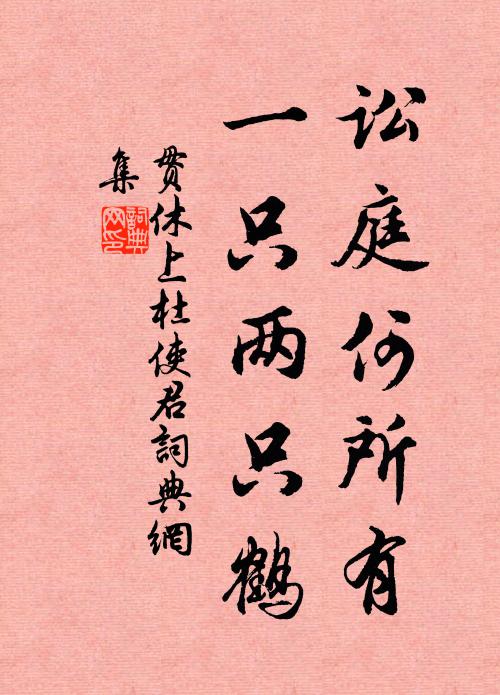 讼庭何所有
一只两只鹤
贯休上杜使君词典網
集
詞典
网印